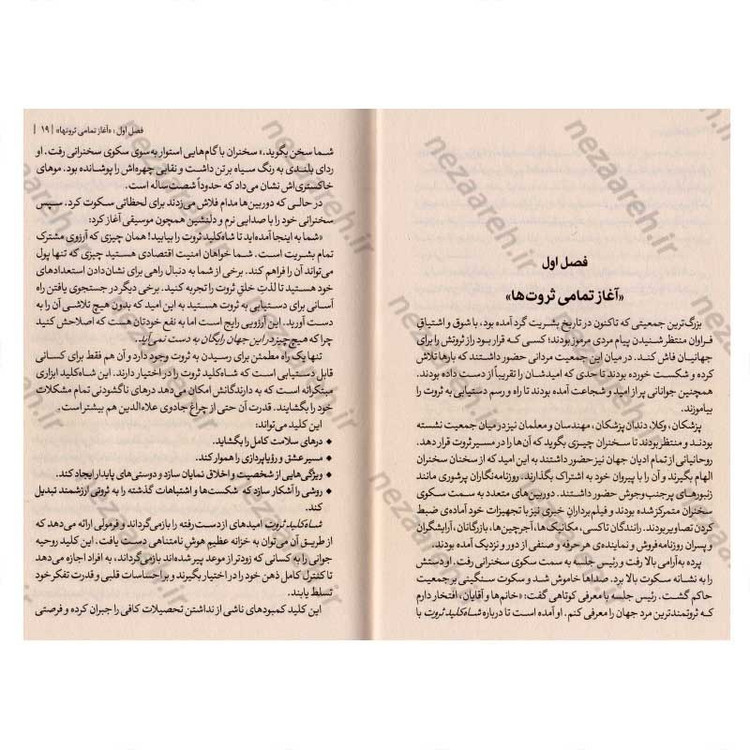 فصل اول
«آغاز تمامی ثروت‌ها»
بزرگ‌ترین جمعیتی که تاکنون در تاریخ بشریت گرد آمده بود، با شوق و اشتیاق
فراوان منتظر شنیدن پیام مردی مرموز بودند؛ کسی که قرار بود راز ثروتش را برای
جهانیان فاش کند. در میان این جمعیت مردانی حضور داشتند که بارها تلاش
کرده و شکست خورده بودند تا حدی که امیدشان را تقریباً از دست داده بودند.
همچنین جوانانی پر از امید و شجاعت آمده بودند تا راه و رسم دستیابی به ثروت را
بیاموزند.
پزشکان، وکلا، دندان پزشکان، مهندسان و معلمان نیز در میان جمعیت نشسته
بودند و منتظر بودند تا سخنران چیزی بگوید که آن‌ها را در مسیر ثروت قرار دهد.
روحانیانی از تمام ادیان جهان نیز حضور داشتند به این امید که از سخنان سخنران
الهام بگیرند و آن را با پیروان خود به اشتراک بگذارند. روزنامه‌نگاران پرشوری مانند
زنبورهای پرجنب‌وجوش حضور داشتند. دوربین‌های متعدد به سمت سکوی
سخنران متمرکز شده بودند و فیلم‌برداران خبری نیز با تجهیزات خود آماده‌ی ضبط
کردن تصاویر بودند. رانندگان تاکسی، مکانیک‌ها، آجرچین‌ها، بازرگانان، آرایشگران
و پسران روزنامه‌فروش و نماینده‌ی هر حرفه و صنفی از دور و نزدیک آمده بودند.
پرده به‌آرامی بالا رفت و رئیس جلسه به سمت سکوی سخنرانی رفت. او دستش
را به نشانه سکوت بالا برد. صداها خاموش شد و سکوت سنگینی بر جمعیت
حاکم گشت. رئیس جلسه با معرفی کوتاهی گفت: «خانم‌ها و آقایان، افتخار دارم
که ثروتمندترین مرد جهان را معرفی کنم. او آمده است تا درباره شاه‌کلید ثروت با
فصل اول: «آغاز تمامی ثروتها» | ۱۹ |
شما سخن بگوید.» سخنران با گام‌هایی استوار به‌سوی سکوی سخنرانی رفت. او
ردای بلندی به رنگ سیاه بر تن داشت و نقابی چهره‌اش را پوشانده بود. موهای
خاکستری‌اش نشان می‌داد که حدوداً شصت ساله است.
در حالی که دوربین‌ها مدام فلاش می‌زدند برای لحظاتی سکوت کرد. سپس
سخنرانی خود را با صدایی نرم و دلنشین همچون موسیقی آغاز کرد:
«شما به اینجا آمده‌اید تا شاه‌کلید ثروت را بیابید! همان چیزی که آرزوی مشترک
تمام بشریت است. شما خواهان امنیت اقتصادی هستید چیزی که تنها پول
می‌تواند آن را فراهم کند. برخی از شما به دنبال راهی برای نشان‌دادن استعدادهای
خود هستید تا لذتِ خلقِ ثروت را تجربه کنید. برخی دیگر در جستجوی یافتن راه
آسانی برای دستیابی به ثروت هستید به این امید که بدون هیچ تلاشی آن را به
دست آورید. این آرزویی رایج است اما به نفع خودتان هست که اصلاحش کنید
چرا که هیچ چیز در این جهان رایگان به دست نمی‌آید.
تنها یک راه مطمئن برای رسیدن به ثروت وجود دارد و آن هم فقط برای کسانی
قابل دستیابی است که شاه‌کلید ثروت را در اختیار دارند. این شاه‌کلید ابزاری
مبتکرانه است که به دارندگانش امکان می‌دهد درهای ناگشودنی تمام مشکلات
خود را بگشایند. قدرت آن حتی از چراغ جادوی علاءالدین هم بیشتر است.
این کلید می‌تواند:
◆ درهای سلامت کامل را بگشاید.
◆ مسیر عشق و رؤیاپردازی را هموار کند.
◆ ویژگی‌هایی از شخصیت و اخلاق نمایان سازد و دوستی‌های پایدار ایجاد کند.
◆ روشی را آشکار سازد که شکست‌ها و اشتباهات گذشته را به ثروتی ارزشمند تبدیل
کند.
شاه‌کلید ثروت امیدهای از دست رفته را بازمی‌گرداند و فرمولی ارائه می‌دهد که
از طریق آن می‌توان به خزانه عظیم هوشِ نامتناهی دست یافت. این کلید روحیه
جوانی را به کسانی که زودتر از موعد پیر شده‌اند بازمی‌گرداند، به افراد اجازه می‌دهد
تا کنترل کامل ذهن خود را در اختیار بگیرند و بر احساسات قلبی و قدرت تفکر خود
تسلط یابند.
این کلید کمبودهای ناشی از نداشتن تحصیلات کافی را جبران کرده و فرصتی
nezaareh.ir